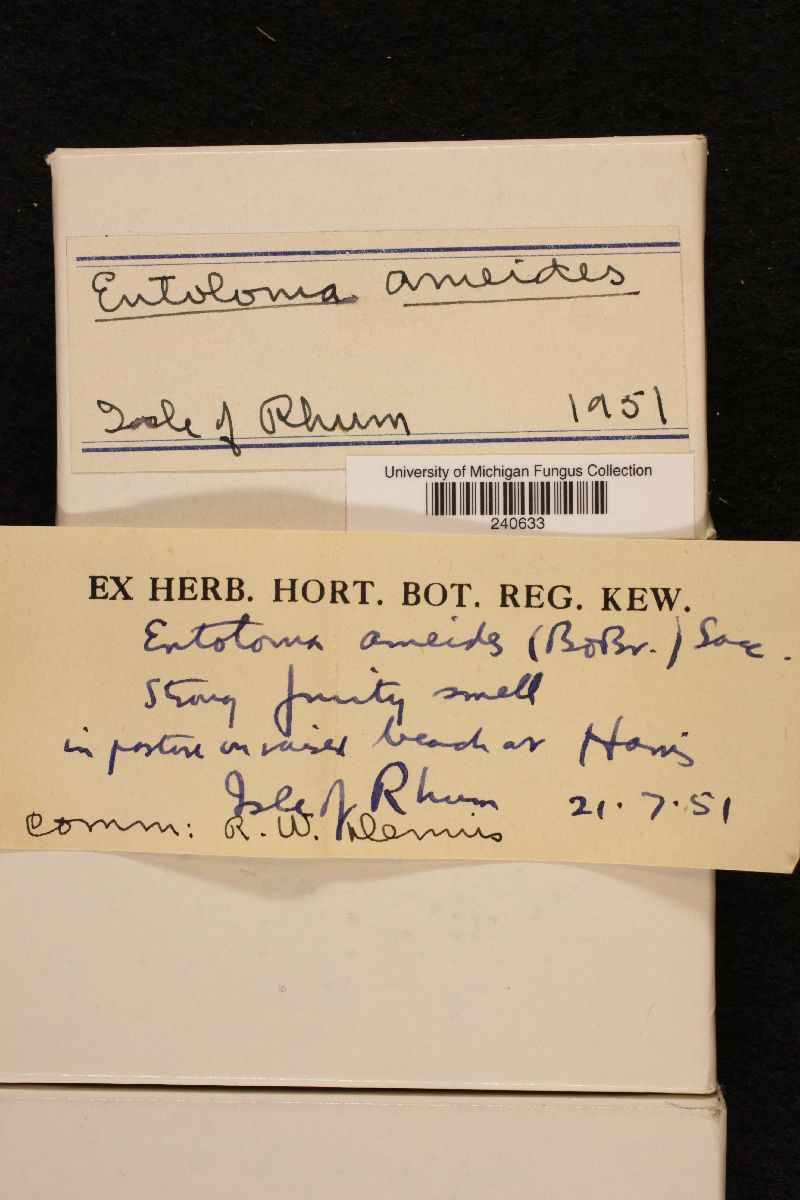 Entoloma ameides
Isle of Rhum 1951
University of Michigan Fungus Collection
240633
EX HERB. HORT. BOT. REG. KEW.
Entoloma ameides (B&Br.) Sacc.
Strong fruity smell
in pasture on raised beach at Harris
Isle of Rhum 21.7.51
comm: R.W. Dennis